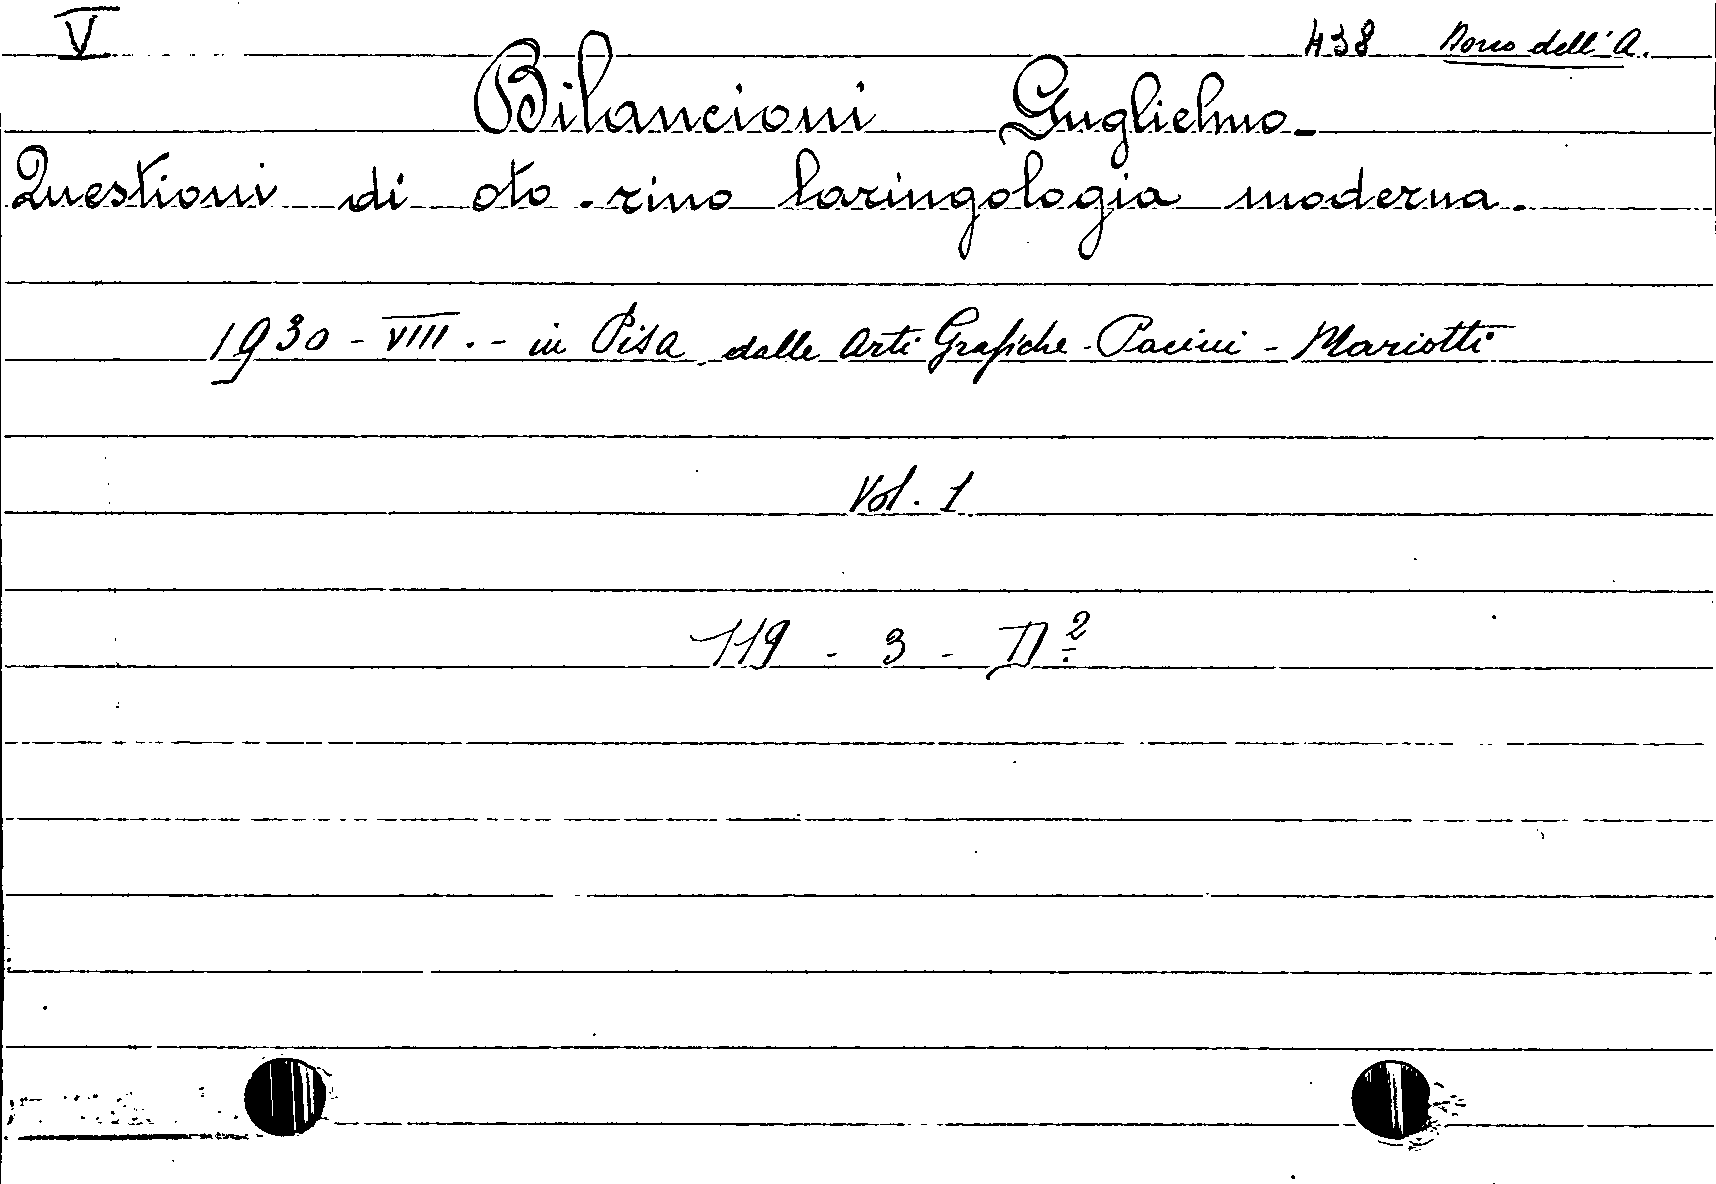 V 438 Dono dell'A.
Bilancioni Guglielmo.
Questioni di oto-rino laringologia moderna.
1930 - VIII. - in Pisa dalle Arti Grafiche - Pacini - Mariotti
Vol. 1
119 - 3 - D 2